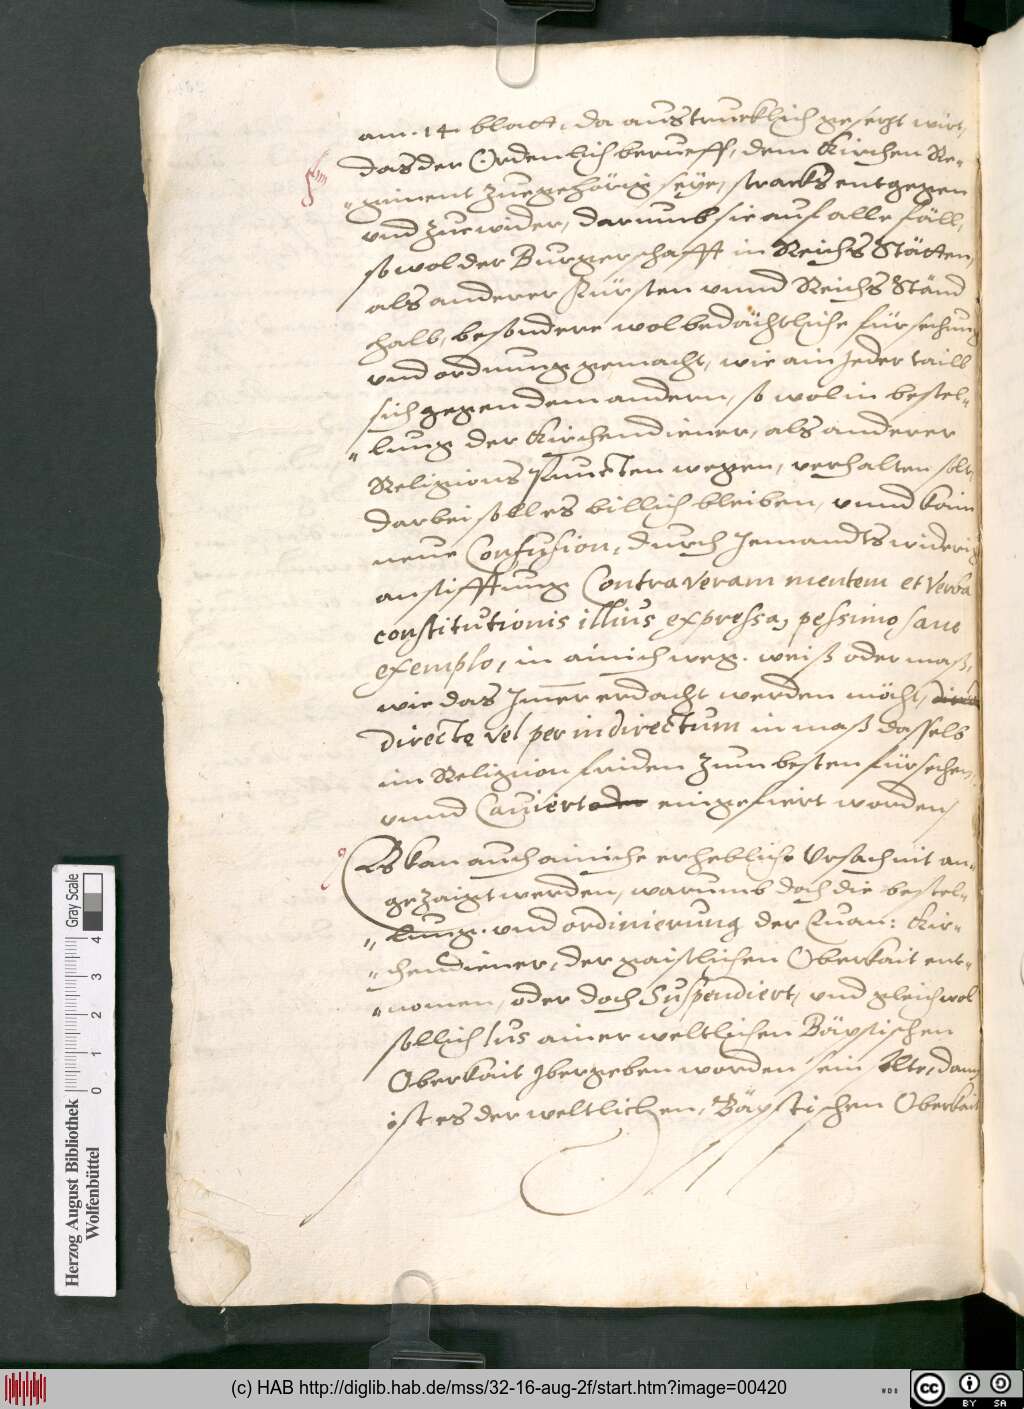 am. 14 blatt, da austrucklich gesetzt wirt,
das der Ordenlich berueff, dem Kirchen Re-
„ giment Zuegehörig seÿe, stracks entgegen
vnd Zuewider, darumb sie auf alle fäll,
so wol der Burgerschafft in Reichs Stätten,
als anderer Fürsten vnnd Reichs Ständ
halb, besondere wolbedächtliche fürsehung
vnd ordnung gemacht, wie ain Jeder taill
sich gegen dem andern, so wol in bestel-
„ lung der Kirchendiener, als anderer
Religions Puncten wegen, verhalten soll,
darbei soll es billich bleiben, vnnd kain
neue Confusion, durch Jemandts widerig
anstifftung Contra veram mentem et verba
constitutionis illius expressa, pessimo sane
exemplo, in ainich weg. weiß oder maß,
wie das Jm̅er erdacht werden möcht,
directe vel per indirectum in maß dasselb
im Religion friden Zum besten fürsehen,
vnnd Caviert oder eingefiert worden,
Es kan auch ainiche erhebliche Vrsach nit an-
gezaigt werden, warumb doch die bestel-
„ lung. vnd ordinierung der Euan: Kir-
„ chendiener, der gaistlichen Oberkait ent-
„ nomen, oder doch Suspendiert, vnd gleichwol
sollich Ius ainer weltlichen Bäpstischen
Oberkait Jbergeben worden sein sollte, dann
ist es der weltlichen, Bäpstischen Oberkait
Herzog August Bibliothek
Wolfenbüttel
0 1 2 3 4
Gray Scale
(c) HAB http://diglib.hab.de/mss/32-16-aug-2f/start.htm?image=00420
WDB
cc BY SA